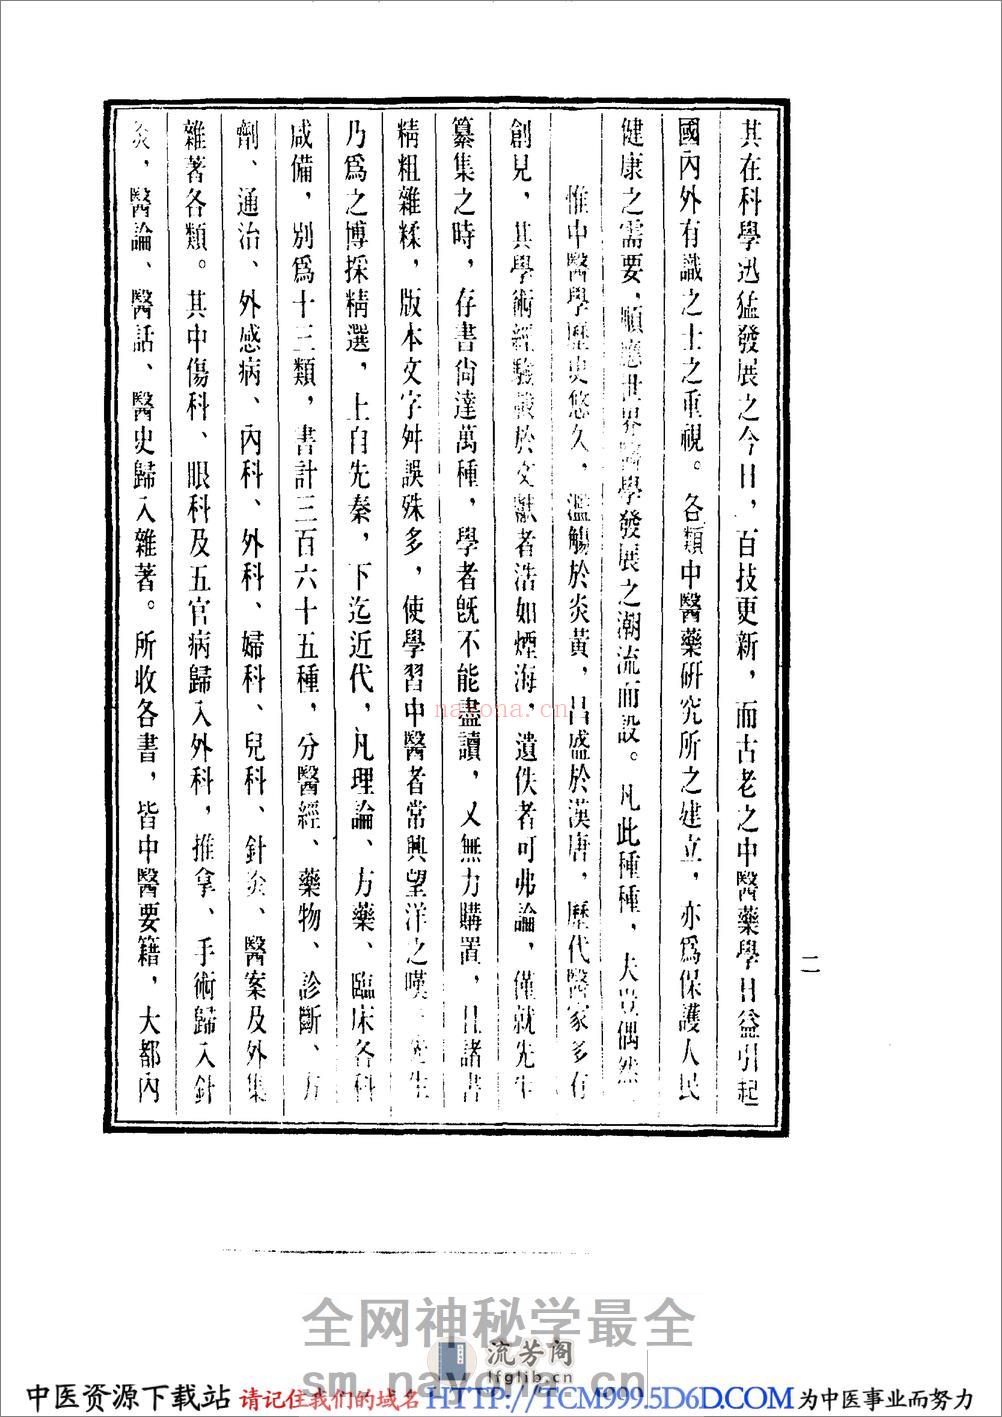 其在科學迅猛發展之今日，百技更新，而古老之中醫藥學日益引起
國內外有識之士之重視。各類中醫藥研究所之建立，亦爲保護人民
健康之需要，順應世界醫學發展之潮流而設。凡此種種，夫豈偶然
惟中醫學歷史悠久，濫觴於炎黃，昌盛於漢唐，歷代醫家多有
創見，其學術經驗載於文獻者浩如煙海，遺佚者可弗論，僅就先生
纂集之時，存書尙達萬種，學者旣不能盡讀，又無力購置，且諸書
精粗雜糅，版本文字舛誤殊多，使學習中醫者常興望洋之嘆。先生
乃爲之博採精選，上自先秦，下迄近代，凡理論、方藥、臨床各科
咸備，別爲十三類，書計三百六十五種，分醫經、藥物、診斷、方
劑、通治、外感病、內科、外科、婦科、兒科、針灸、醫案及外集
雜著各類。其中傷科、眼科及五官病歸入外科，推拿、手術歸入針
灸，醫論、醫話、醫史歸入雜著。所收各書，皆中醫要籍，大都內
二
nayona.cn
全网神秘学最全
流芳阁
lfglib.cn
sm.nayona.cn
中医资源下载站 请记住我们的域名 HTTP://TCM999.5D6D.COM 为中医事业而努力